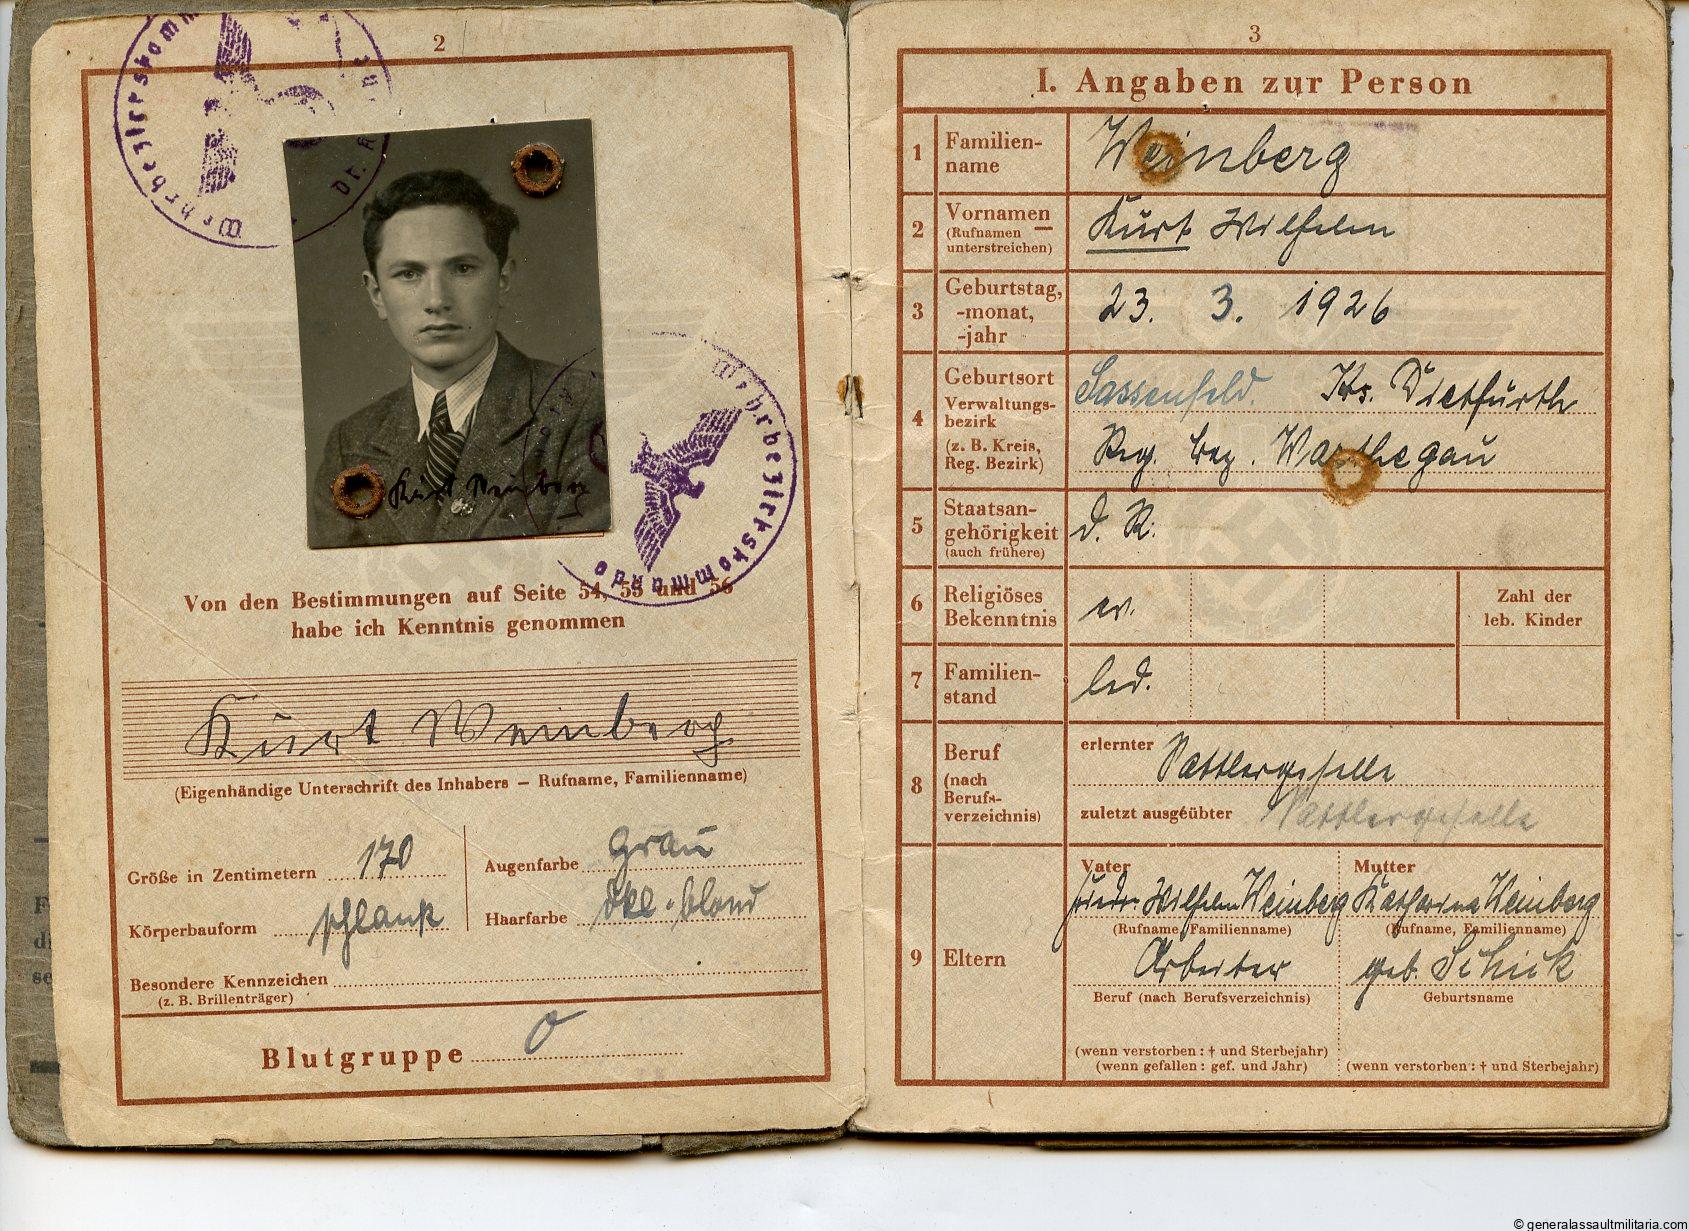 2
Wehrbezirkskommando
Kurt Weinberg
Wehrbezirkskommando
Von den Bestimmungen auf Seite 54, 55 und 56
habe ich Kenntnis genommen
Kurt Weinberg
(Eigenhändige Unterschrift des Inhabers — Rufname, Familienname)
Größe in Zentimetern 170
Augenfarbe grau
Körperbauform schlank
Haarfarbe dkl.-blond
Besondere Kennzeichen
(z. B. Brillenträger)
Blutgruppe 0
3
I. Angaben zur Person
1 Familien-
name
Weinberg
2 Vornamen
(Rufnamen
unterstreichen)
Kurt Wilhelm
3 Geburtstag,
-monat,
-jahr
23. 3. 1926
4 Geburtsort
Verwaltungs-
bezirk
(z. B. Kreis,
Reg. Bezirk)
Sassenfeld. Krs. Dietfurth
Reg. bez. Warthegau
5 Staatsan-
gehörigkeit
(auch frühere)
d. R.
6 Religiöses
Bekenntnis
ev.
Zahl der
leb. Kinder
7 Familien-
stand
led.
8 Beruf
(nach
Berufs-
verzeichnis)
erlernter Sattlergeselle
zuletzt ausgeübter Sattlergeselle
9 Eltern
Vater
Wilhelm Weinberg
(Rufname, Familienname)
Arbeiter
Beruf (nach Berufsverzeichnis)
(wenn verstorben: † und Sterbejahr)
(wenn gefallen: gef. und Jahr)
Mutter
Katharina Weinberg
(Rufname, Familienname)
geb. Schick
Geburtsname
(wenn verstorben: † und Sterbejahr)
© generalassaultmilitaria.com